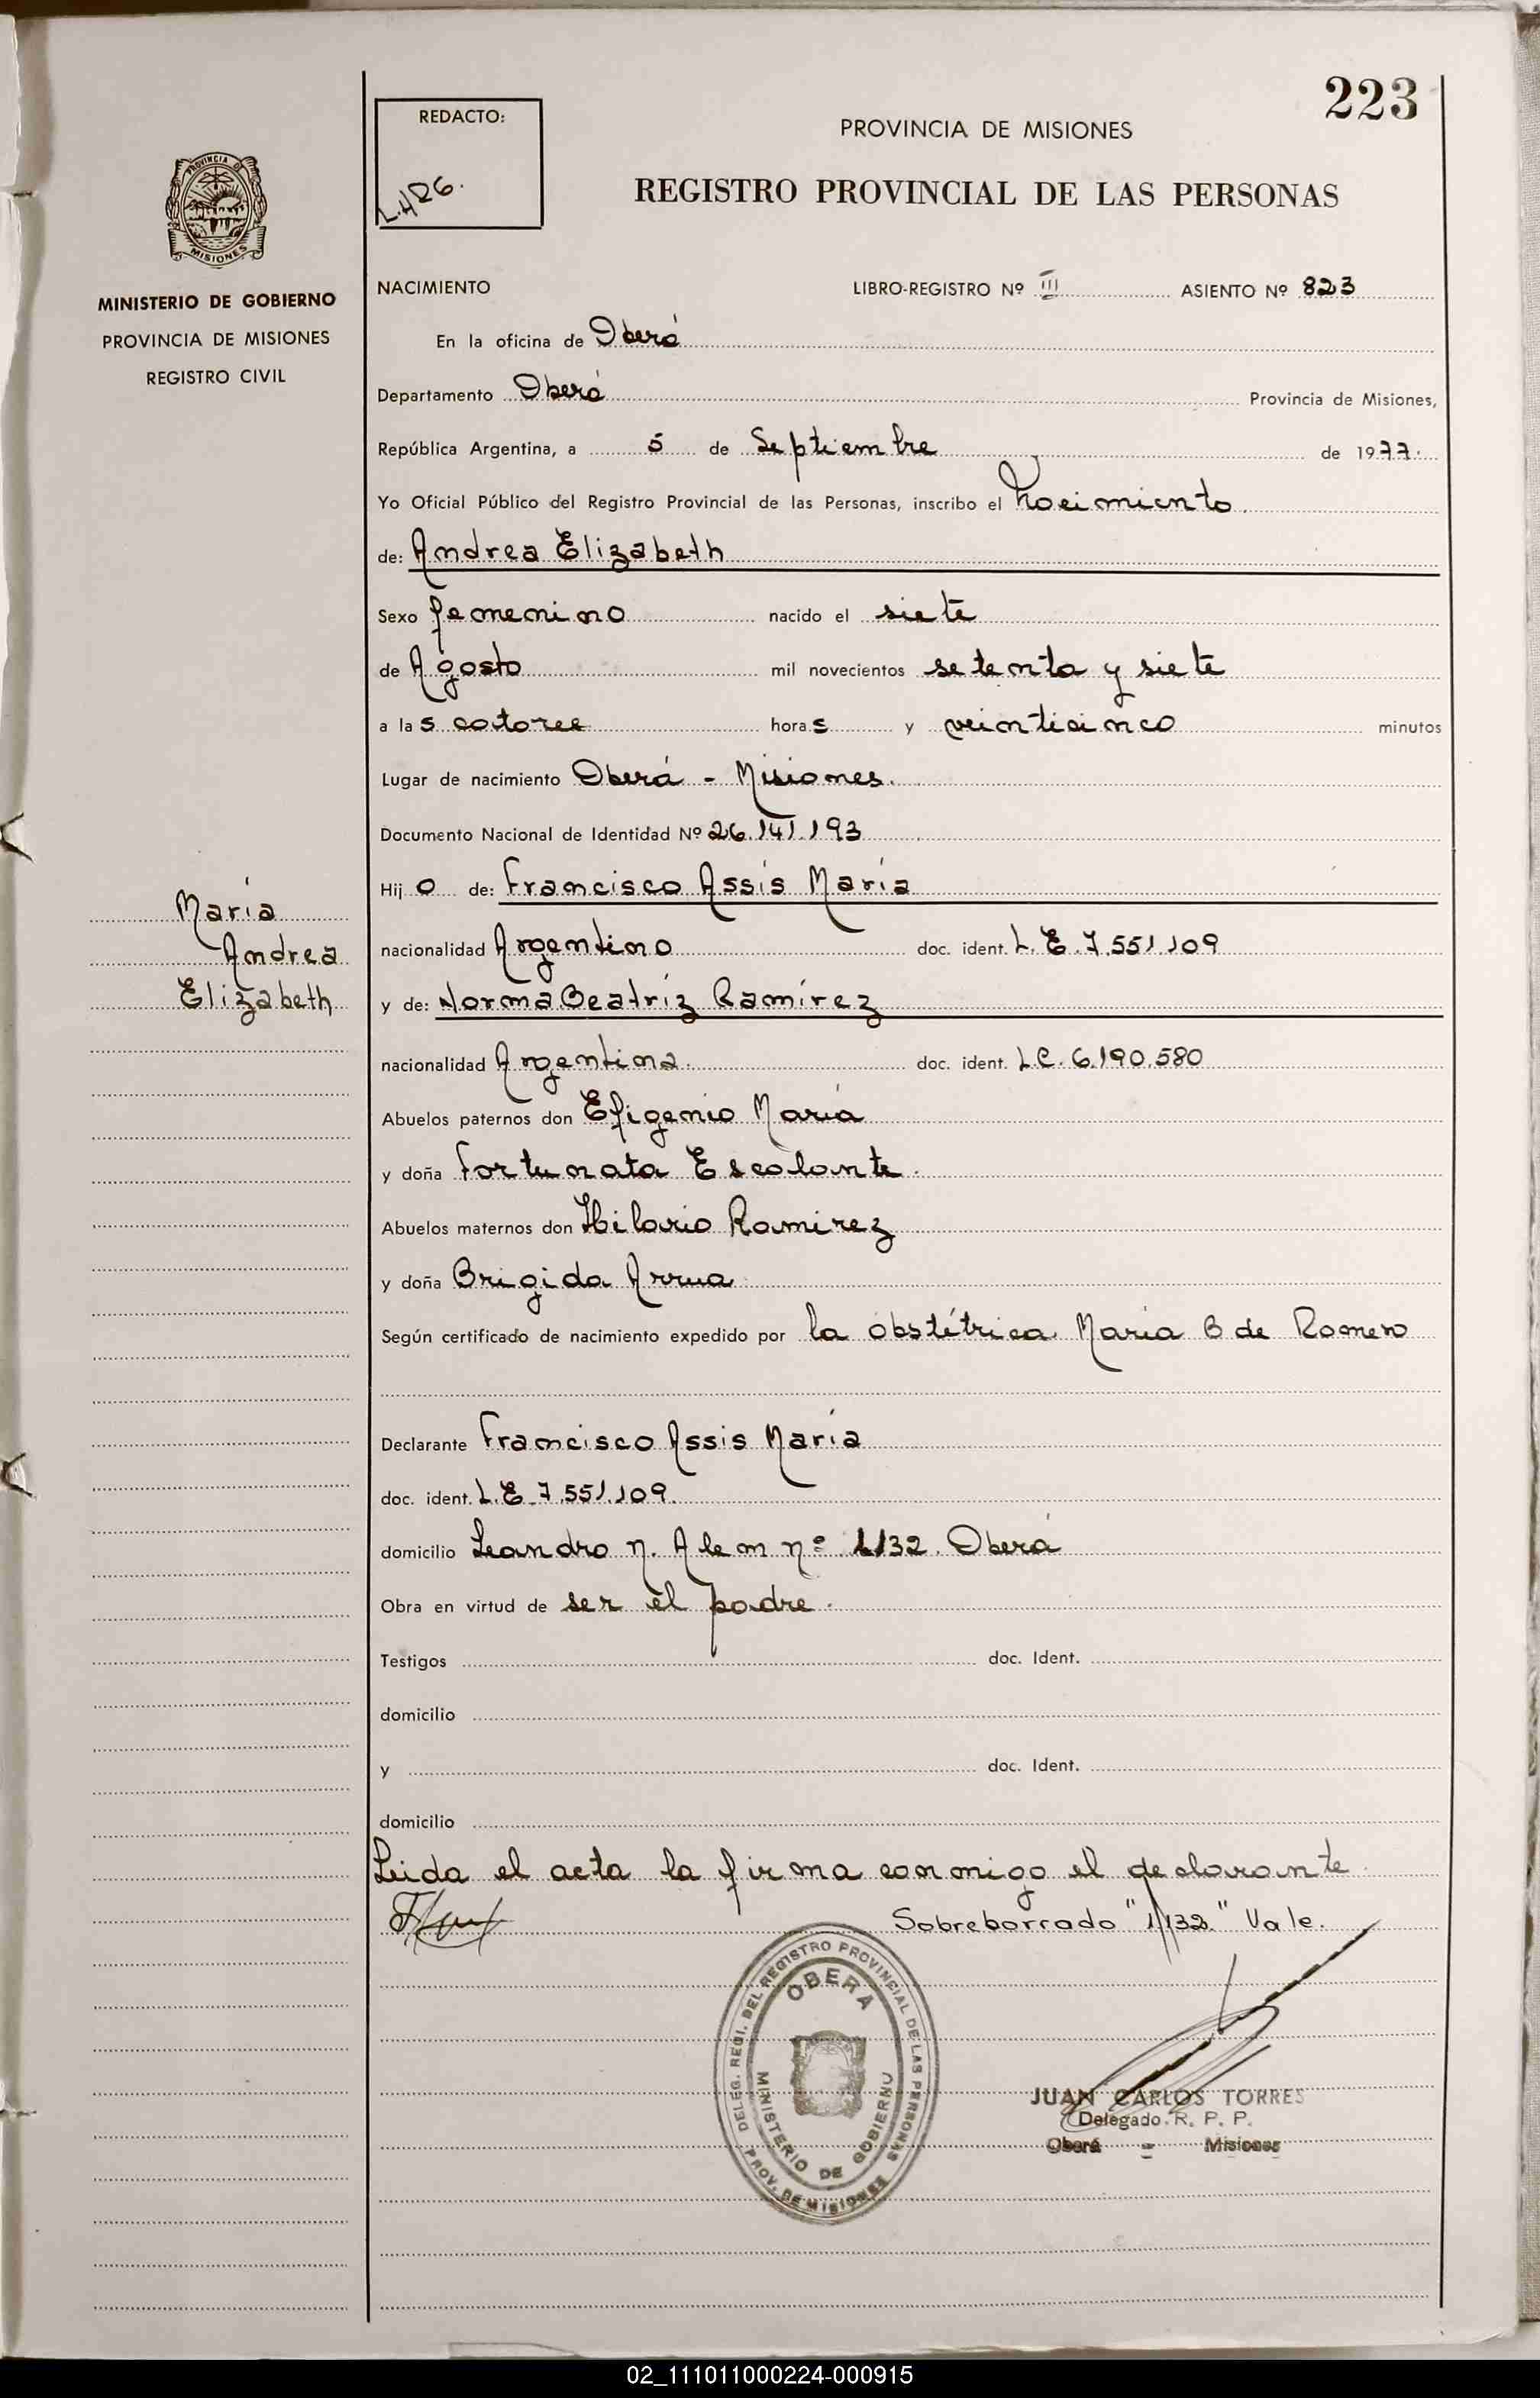 223
REDACTO:
PROVINCIA DE MISIONES
REGISTRO PROVINCIAL DE LAS PERSONAS
PROVINCIA DE
MISIONES
MINISTERIO DE GOBIERNO
PROVINCIA DE MISIONES
REGISTRO CIVIL
NACIMIENTO LIBRO-REGISTRO Nº III ASIENTO Nº 823
En la oficina de Oberá
Departamento Oberá Provincia de Misiones,
República Argentina, a 5 de Septiembre de 1977.
Yo Oficial Público del Registro Provincial de las Personas, inscribo el nacimiento
de: Andrea Elizabeth
Sexo femenino nacido el siete
de Agosto mil novecientos setenta y siete
a las catorce horas y veinticinco minutos
Lugar de nacimiento Oberá - Misiones.
Documento Nacional de Identidad Nº 26.141.193
Hijo de: Francisco Assis María
nacionalidad Argentino doc. ident. L.E.7.551.109
y de: Norma Beatríz Ramírez
nacionalidad Argentina. doc. ident. L.C. 6.190.580
María
Andrea
Elizabeth
Abuelos paternos don Efigenio María
y doña Fortunata Escalante.
Abuelos maternos don Hilario Ramirez
y doña Brigida Arrua
Según certificado de nacimiento expedido por la obstétrica María B de Romero
Declarante Francisco Assis María
doc. ident. L.E.7.551.109.
domicilio Leandro N. Alem nº 1132. Oberá
Obra en virtud de ser el padre.
Testigos doc. Ident.
domicilio
y doc. Ident.
domicilio
Leida el acta la firma conmigo el declarante.
Sobreborrado "1132" Vale.
DELEG. REGI. DEL REGISTRO PROVINCIAL DE LAS PERSONAS
OBERA
MINISTERIO DE GOBIERNO
PROV. DE MISIONES
JUAN CARLOS TORRES
Delegado R. P. P.
Oberá - Misiones
02_111011000224-000915